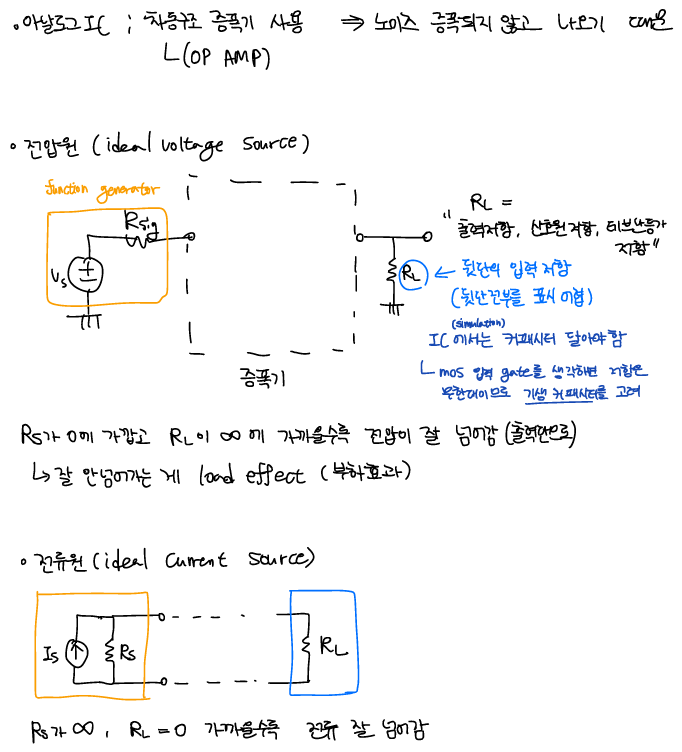 • 아날로그 IC ; 차동구조 증폭기 사용 ⇒ 노이즈 증폭되지 않고 나오기 때문
└(OP AMP)
• 전압원 (ideal voltage source)
function generator
Rsig
Vs
RL =
"출력저항, 신호원 저항, 테브난등가
저항"
RL ← 뒷단의 입력 저항
(뒷단 전부를 표시 어렵)
(simulation)
IC에서는 커패시터 달아야함
└ mos 입력 gate를 생각하면 저항은
무한대이므로 기생 커패시터를 고려
증폭기
Rs가 0에 가깝고 RL이 ∞에 가까울수록 전압이 잘 넘어감 (출력단으로)
↳ 잘 안넘어가는 게 load effect (부하효과)
• 전류원 (ideal current source)
Is Rs RL
Rs가 ∞, RL = 0 가까울수록 전류 잘 넘어감